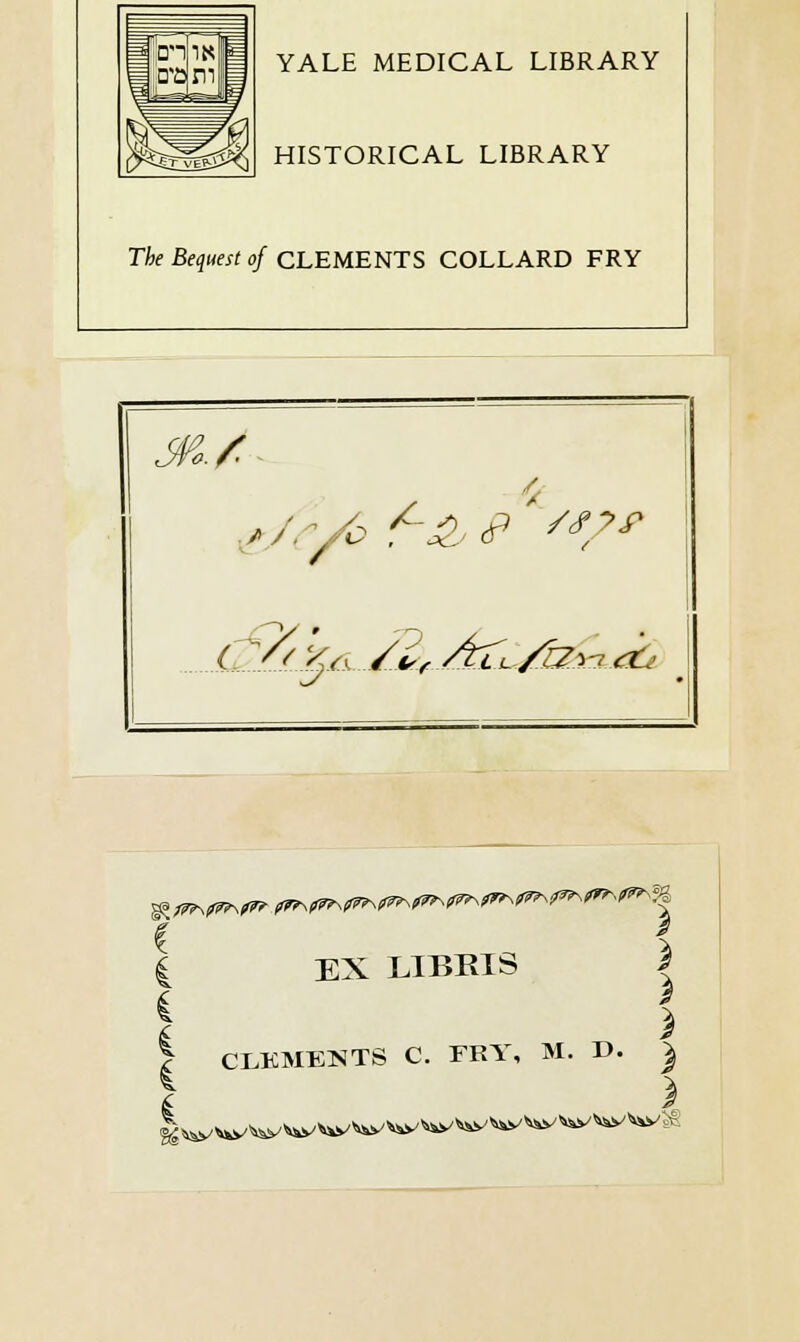 אורים
ותמים
LUX ET VERITAS
YALE MEDICAL LIBRARY
HISTORICAL LIBRARY
The Bequest of CLEMENTS COLLARD FRY
No. 1.
1878
EX LIBRIS
CLEMENTS C. FRY, M. D.